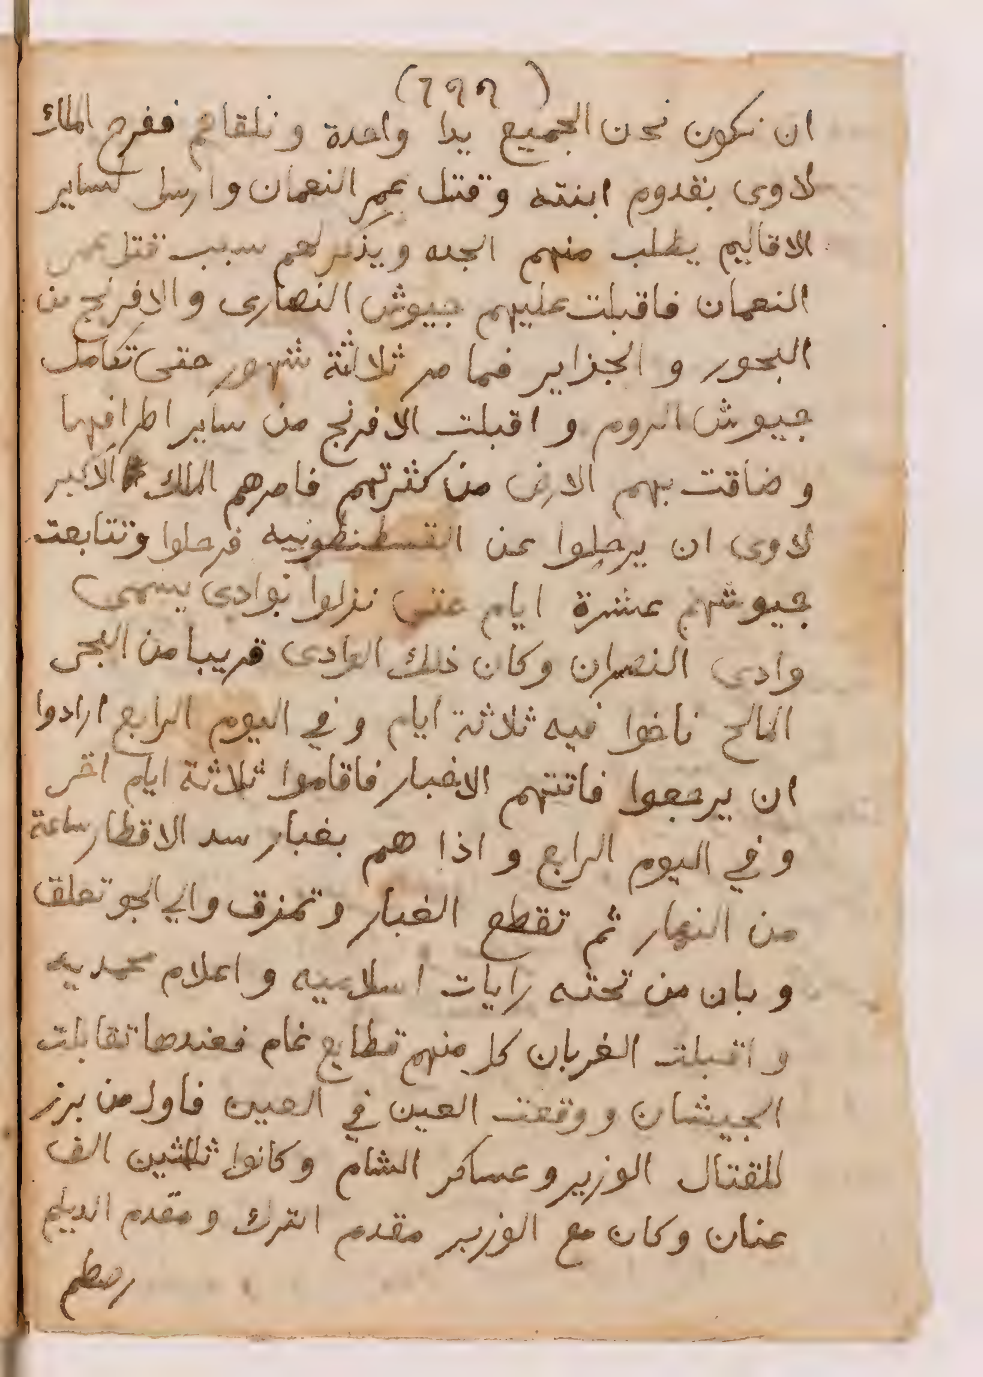 (٦٩٩)
ان نكون نحن الجميع يدا واحدة ونلقاهم ففرح الملك
لاوى بقدوم ابنته وقتل عمر النعمان وارسل لساير
الاقاليم يطلب منهم النجده ويذكر لهم سبب قتل عمر
النعمان فاقبلت عليهم جيوش النصارى والافرنج من
البحور و الجزاير فما مر ثلاثة شهور حتى تكامل
جيوش الروم و اقبلت الافرنج من ساير اطرافها
و ضاقت بهم الارض من كثرتهم فامرهم الملك الاكبر
لاوى ان يرحلوا عن القسطنطونيه فرحلوا وتتابعت
جيوشهم عشرة ايام حتى نزلوا بوادى يسمى
وادى النصران وكان ذلك الوادى قريبا من البحر
المالح فاخوا فيه ثلاثة ايام و في اليوم الرابع ارادوا
ان يرجعوا فاتتهم الاخبار فاقاموا ثلاثة ايام اخر
و في اليوم الرابع و اذا هم بغبار سد الاقطار ساعة
من النهار ثم تقطع الغبار وتمزق والى الجو تعلق
و بان من تحته رايات اسلاميه و اعلام محمديه
و اقبلت الفربان كل منهم قطايع غام فعندها تقابلت
الجيشان ووقعت العين في العين فاول من برز
للقتال الوزير وعساكر الشام وكانوا ثلاثين الف
عنان وكان مع الوزير مقدم الترك ومقدم الديلم
رصطم